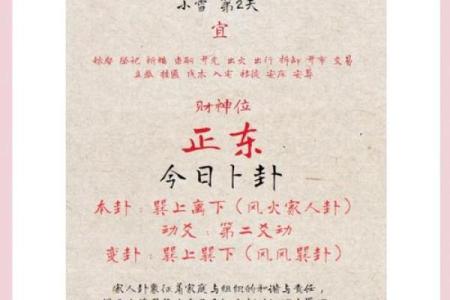 小雪 第2天
宜
嫁娶 祭祀 祈福 斋醮 开光 出火 出行 拆卸 开市 交易
立券 挂匾 伐木 入宅 移徙 安床 安葬
财神位
正东
今日卜卦
本卦：巽上离下（风火家人卦）
动爻：第二爻动
变卦：巽上巽下（风风巽卦）
家人卦象征着家庭与组织的和谐与责任，